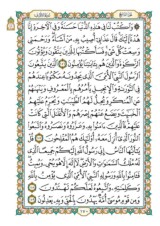 ۞ وَٱكۡتُبۡ لَنَا فِي هَٰذِهِ ٱلدُّنۡيَا حَسَنَةٗ وَفِي ٱلۡأٓخِرَةِ إِنَّا
هُدۡنَآ إِلَيۡكَۚ قَالَ عَذَابِيٓ أُصِيبُ بِهِۦ مَنۡ أَشَآءُۖ وَرَحۡمَتِي
وَسِعَتۡ كُلَّ شَيۡءٖۚ فَسَأَكۡتُبُهَا لِلَّذِينَ يَتَّقُونَ وَيُؤۡتُونَ
ٱلزَّكَوٰةَ وَٱلَّذِينَ هُم بِـَٔايَٰتِنَا يُؤۡمِنُونَ ١٥٦ ٱلَّذِينَ يَتَّبِعُونَ
ٱلرَّسُولَ ٱلنَّبِيَّ ٱلۡأُمِّيَّ ٱلَّذِي يَجِدُونَهُۥ مَكۡتُوبًا عِندَهُمۡ
فِي ٱلتَّوۡرَىٰةِ وَٱلۡإِنجِيلِ يَأۡمُرُهُم بِٱلۡمَعۡرُوفِ وَيَنۡهَىٰهُمۡ
عَنِ ٱلۡمُنكَرِ وَيُحِلُّ لَهُمُ ٱلطَّيِّبَٰتِ وَيُحَرِّمُ عَلَيۡهِمُ
ٱلۡخَبَٰٓئِثَ وَيَضَعُ عَنۡهُمۡ إِصۡرَهُمۡ وَٱلۡأَغۡلَٰلَ ٱلَّتِي كَانَتۡ
عَلَيۡهِمۡۚ فَٱلَّذِينَ ءَامَنُواْ بِهِۦ وَعَزَّرُوهُ وَنَصَرُوهُ وَٱتَّبَعُواْ
ٱلنُّورَ ٱلَّذِيٓ أُنزِلَ مَعَهُۥٓ أُوْلَٰٓئِكَ هُمُ ٱلۡمُفۡلِحُونَ ١٥٧
قُلۡ يَٰٓأَيُّهَا ٱلنَّاسُ إِنِّي رَسُولُ ٱللَّهِ إِلَيۡكُمۡ جَمِيعًا ٱلَّذِي
لَهُۥ مُلۡكُ ٱلسَّمَٰوَٰتِ وَٱلۡأَرۡضِۖ لَآ إِلَٰهَ إِلَّا هُوَ يُحۡيِۦ وَيُمِيتُۖ
فَـَٔامِنُواْ بِٱللَّهِ وَرَسُولِهِ ٱلنَّبِيِّ ٱلۡأُمِّيِّ ٱلَّذِي يُؤۡمِنُ بِٱللَّهِ
وَكَلِمَٰتِهِۦ وَٱتَّبِعُوهُ لَعَلَّكُمۡ تَهۡتَدُونَ ١٥٨
وَمِن قَوۡمِ مُوسَىٰٓ أُمَّةٞ يَهۡدُونَ بِٱلۡحَقِّ وَبِهِۦ يَعۡدِلُونَ ١٥٩
١٧٠